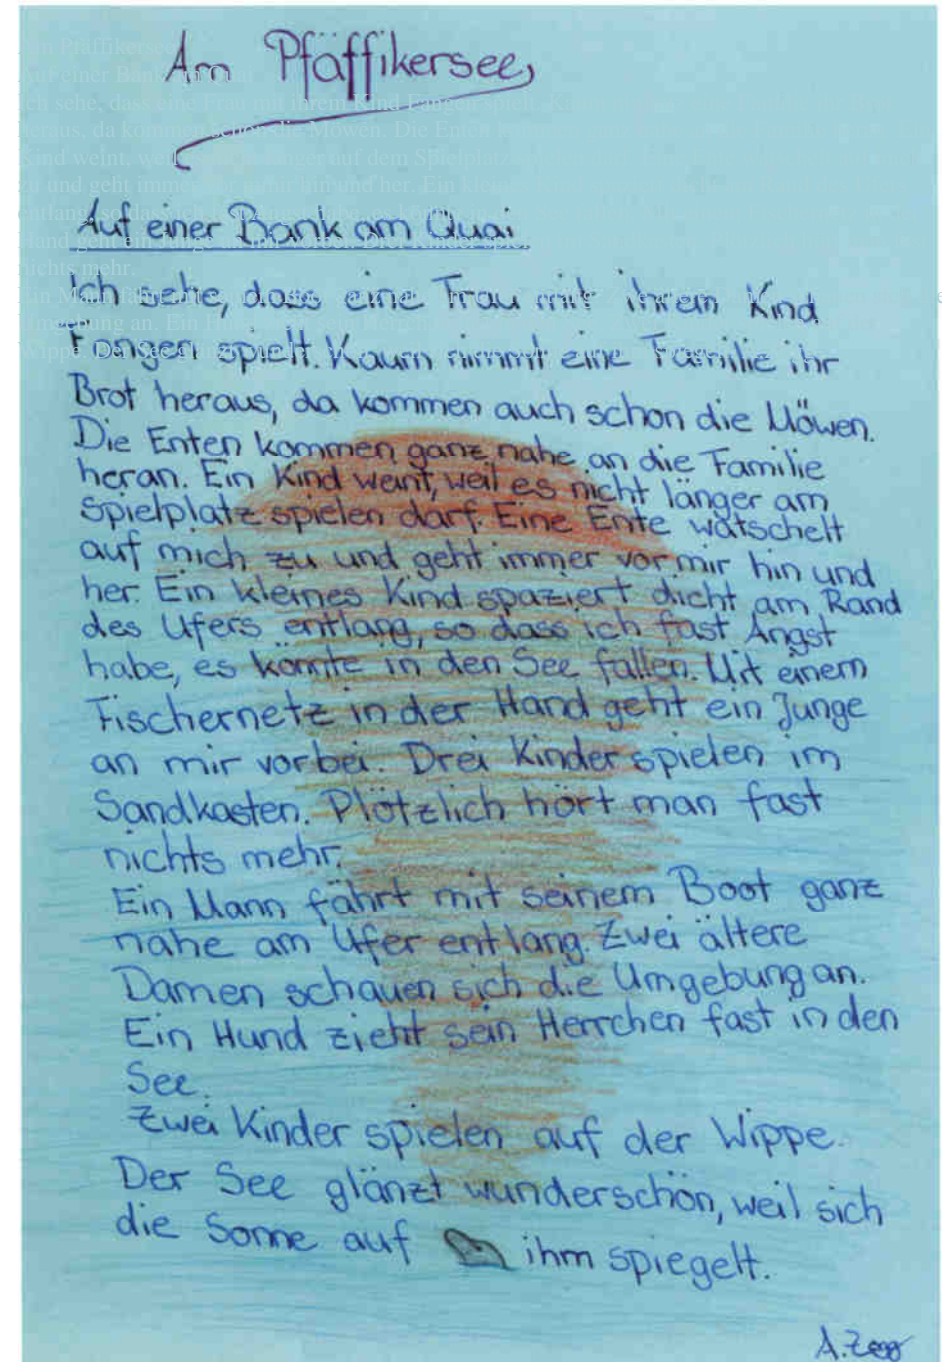 Am Pfäffikersee,
Auf einer Bank am Quai
Ich sehe, dass eine Frau mit ihrem Kind
Fangen spielt. Kaum nimmt eine Familie ihr
Brot heraus, da kommen auch schon die Möwen.
Die Enten kommen ganz nahe an die Familie
heran. Ein Kind weint, weil es nicht länger am
Spielplatz spielen darf. Eine Ente watschelt
auf mich zu und geht immer vor mir hin und
her. Ein kleines Kind spaziert dicht am Rand
des Ufers entlang, so dass ich fast Angst
habe, es könnte in den See fallen. Mit einem
Fischernetz in der Hand geht ein Junge
an mir vorbei. Drei Kinder spielen im
Sandkasten. Plötzlich hört man fast
nichts mehr.
Ein Mann fährt mit seinem Boot ganz
nahe am Ufer entlang. Zwei ältere
Damen schauen sich die Umgebung an.
Ein Hund zieht sein Herrchen fast in den
See.
Zwei Kinder spielen auf der Wippe.
Der See glänzt wunderschön, weil sich
die Sonne auf ihm spiegelt.